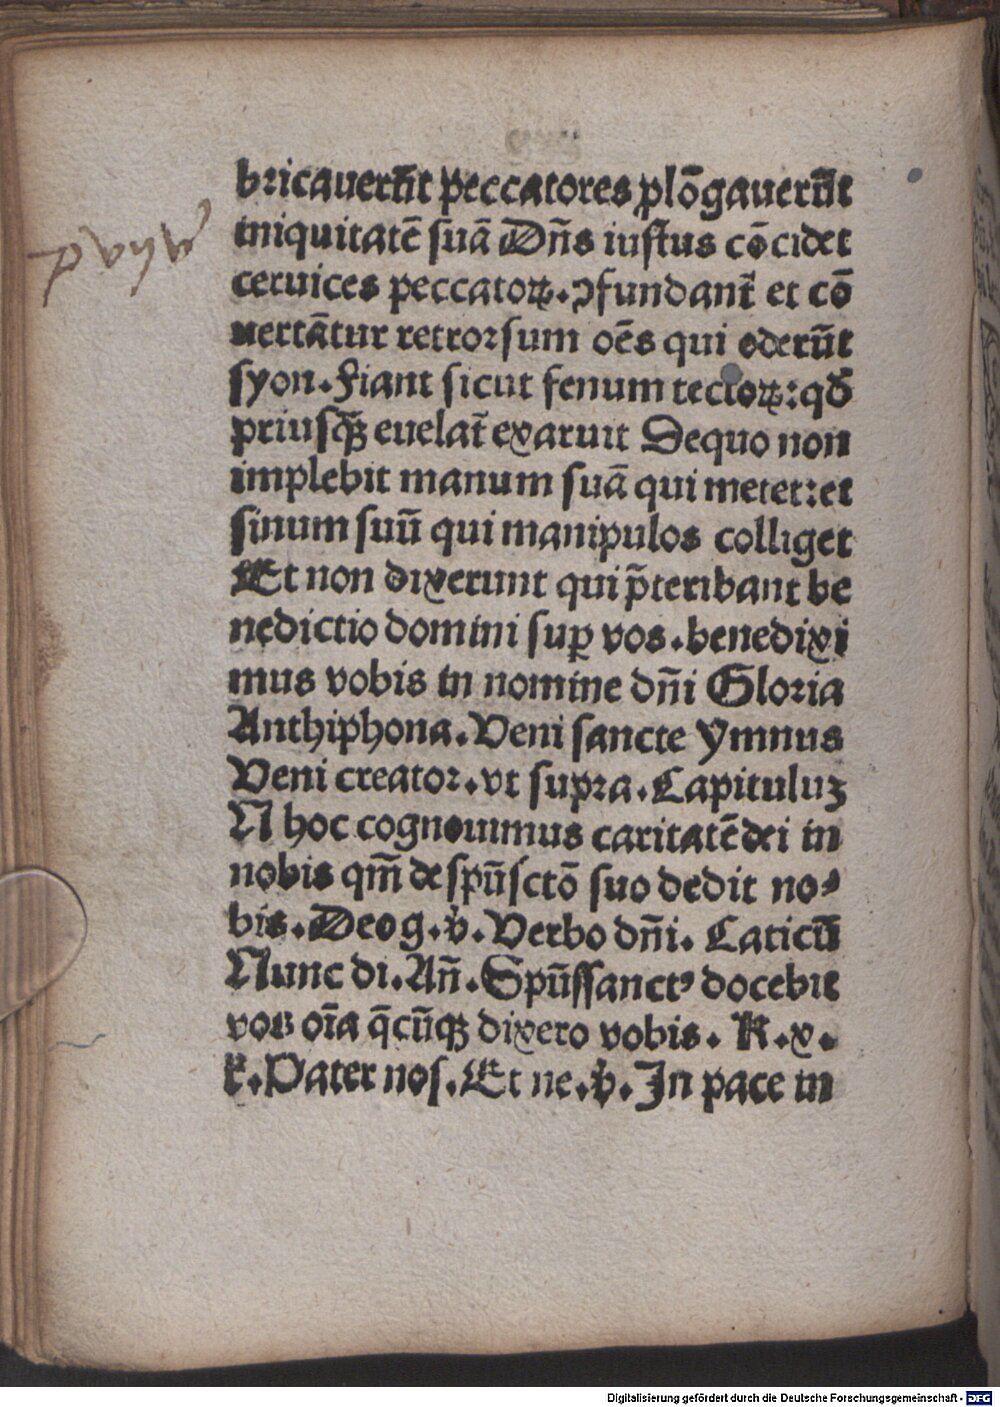 bricauerūt peccatores ꝓlōgauerūt
iniquitatē suā Dn̄s iustus cōcidet
ceruices peccatoꝝ.ↄfundant̄ et cō
uertātur retrorsum oēs qui oderūt
syon.Fiant sicut fenum tectoꝝ:qđ
priusqꝫ euelat̄ exaruit Dequo non
implebit manum suā qui metet:et
sinum suū qui manipulos colliget
Et non dixerunt qui p̄teribant be
nedictio domini suꝑ vos.benedixi
mus vobis in nomine dn̄i Gloria
Anthiphona.Veni sancte Ymnus
Veni creator.vt supra.Capituluꝫ
N hoc cognouimus caritatē dei in
nobis qm̄ de spū sctō suo dedit no⸗
bis.Deo g.v̓.Verbo dn̄i. Caticū
Nunc di.An̄.Spūssanctꝰ docebit
vos oīa q̄cūqꝫ dixero vobis. K.x.
k.Pater nos.Et ne.v̓.In pace in
Digitalisierung gefördert durch die Deutsche Forschungsgemeinschaft - DFG